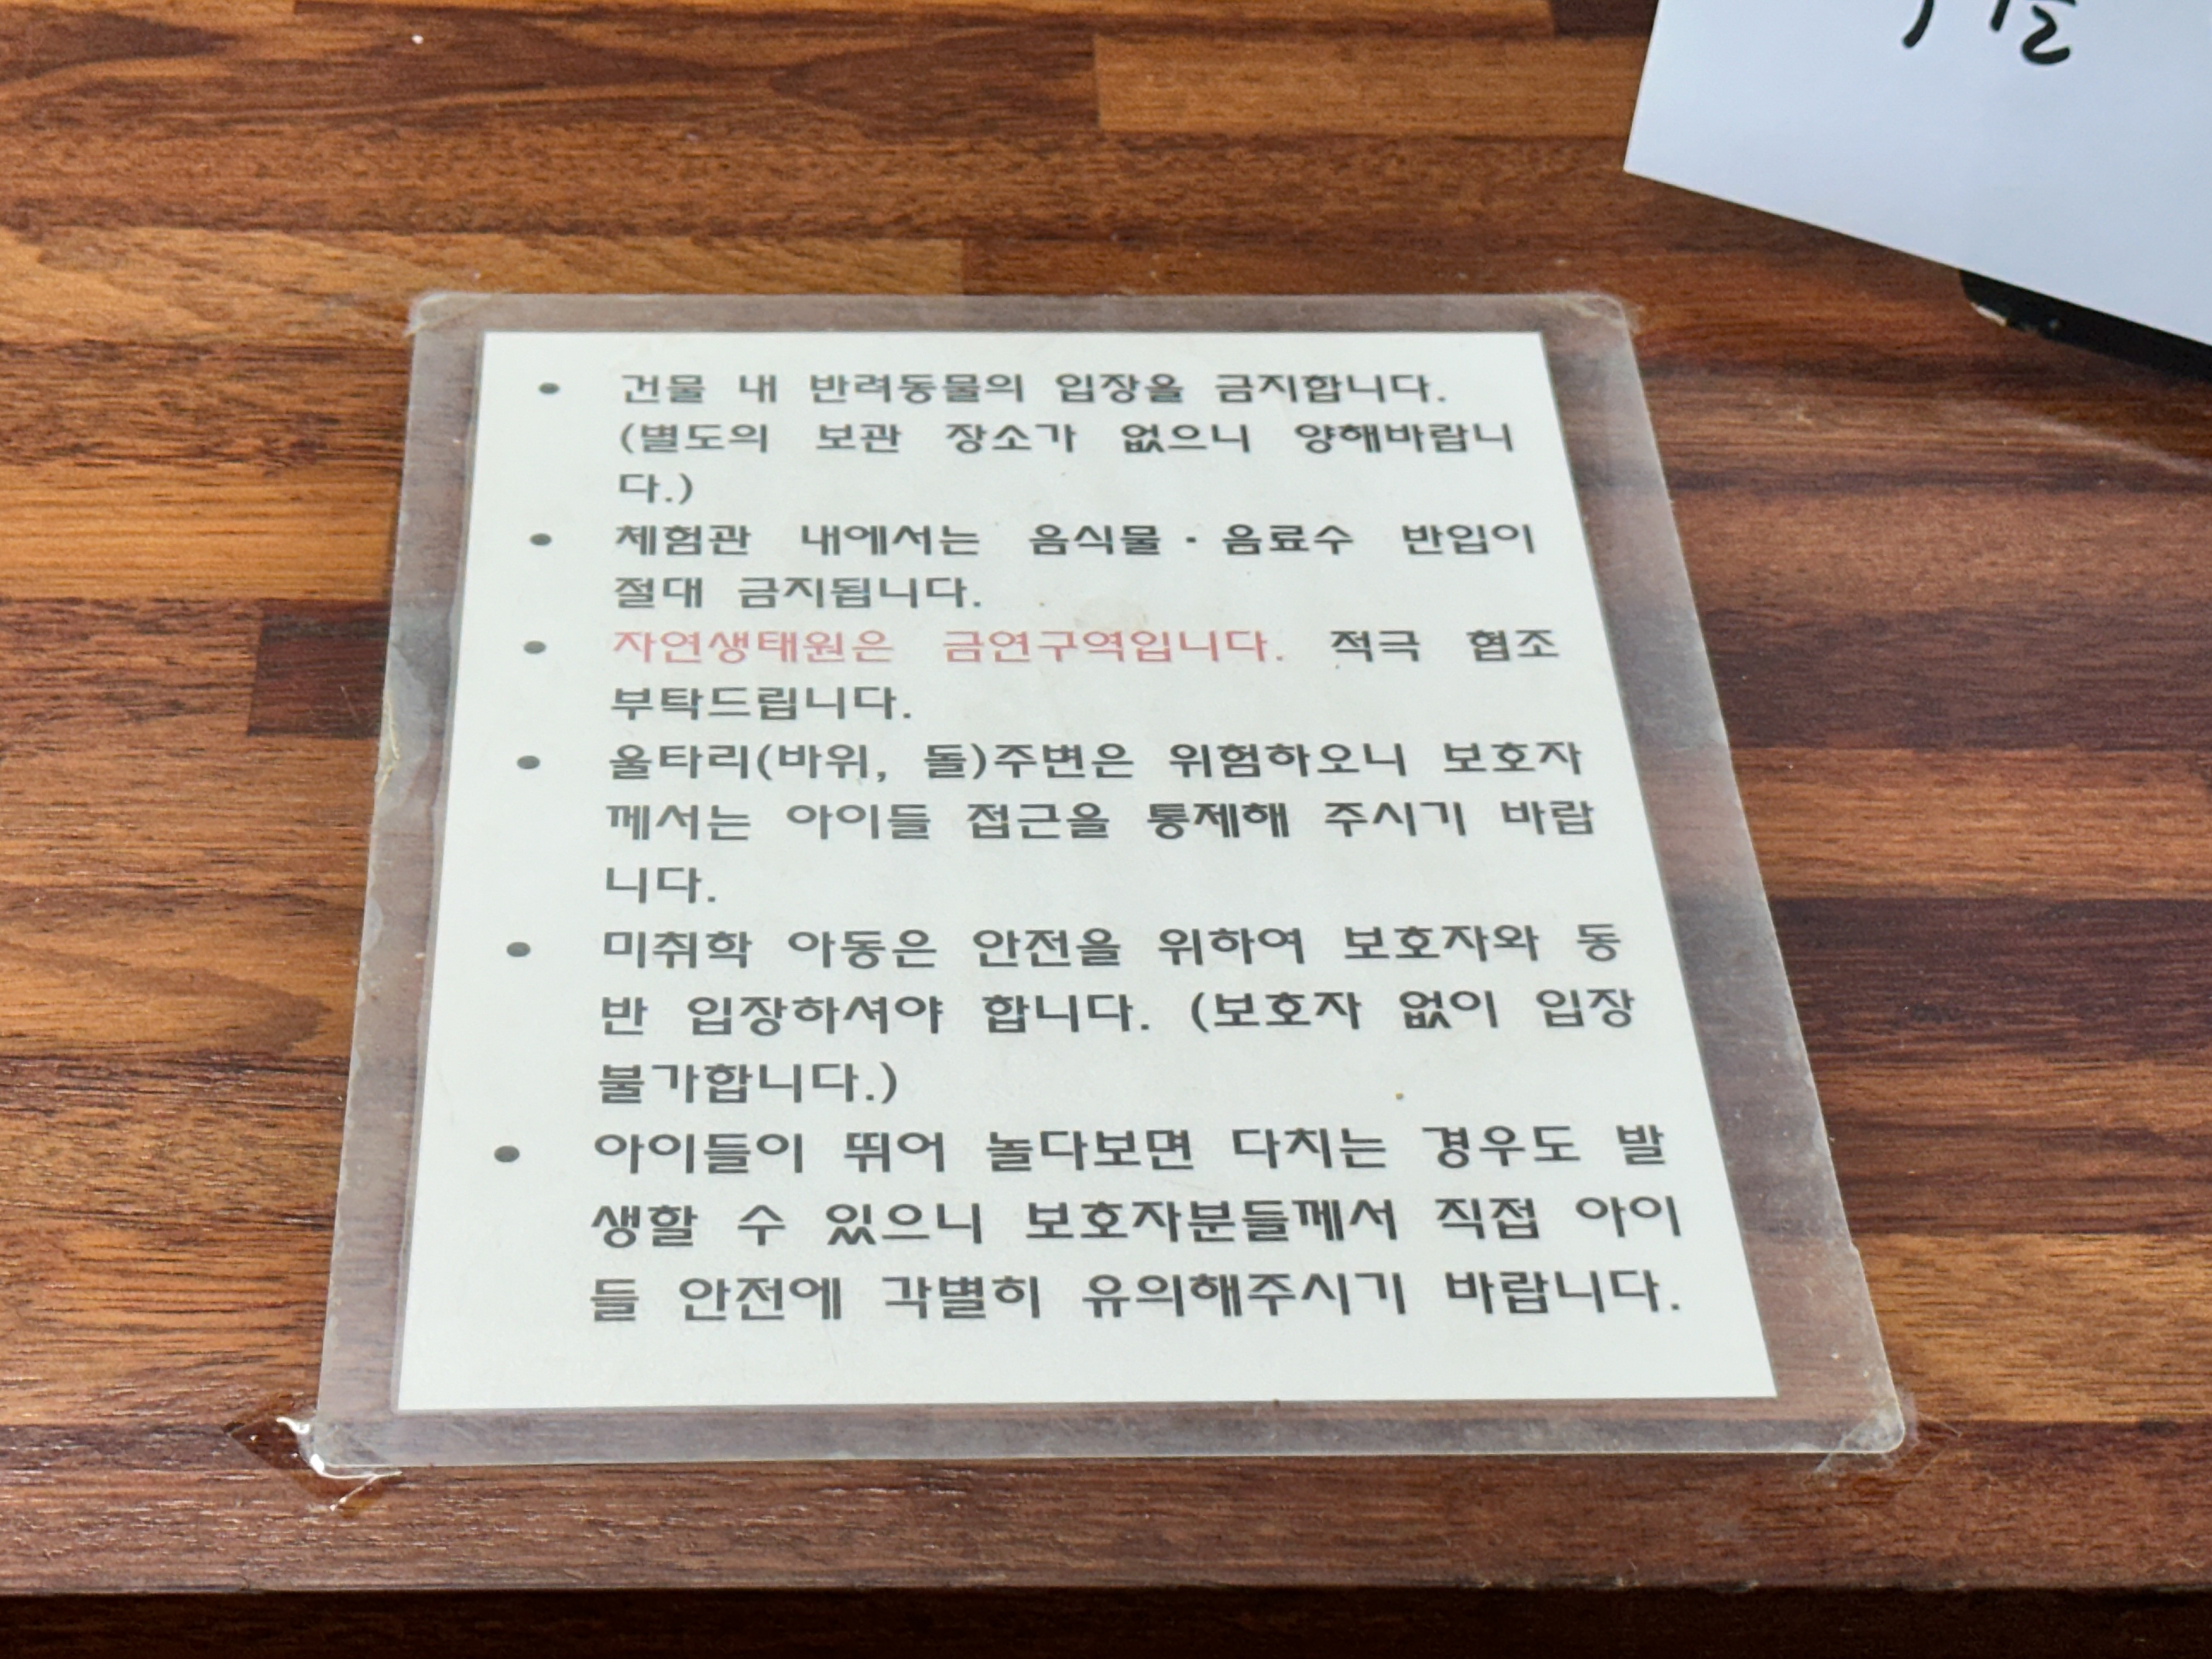 • 건물 내 반려동물의 입장을 금지합니다.
(별도의 보관 장소가 없으니 양해바랍니
다.)
• 체험관 내에서는 음식물·음료수 반입이
절대 금지됩니다.
• 자연생태원은 금연구역입니다. 적극 협조
부탁드립니다.
• 울타리(바위, 돌)주변은 위험하오니 보호자
께서는 아이들 접근을 통제해 주시기 바랍
니다.
• 미취학 아동은 안전을 위하여 보호자와 동
반 입장하셔야 합니다. (보호자 없이 입장
불가합니다.)
• 아이들이 뛰어 놀다보면 다치는 경우도 발
생할 수 있으니 보호자분들께서 직접 아이
들 안전에 각별히 유의해주시기 바랍니다.